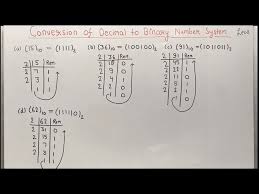 Conversion of Decimal to Binary Number System
(a) (15)₁₀ = (1111)₂
2 | 15 | Rem
2 | 7 | 1
3 | 1
1 | 1
(b) (36)₁₀ = (100100)₂
2 | 36 | Rem
18 | 0
9 | 0
4 | 1
2 | 0
1 | 0
(c) (91)₁₀ = (1011011)₂
2 | 91 | Rem
45 | 1
22 | 1
11 | 0
5 | 1
2 | 1
1 | 0
(d) (62)₁₀ = (111110)₂
2 | 62 | Rem
2 | 31 | 0
2 | 15 | 1
7 | 1
3 | 1
1 | 1